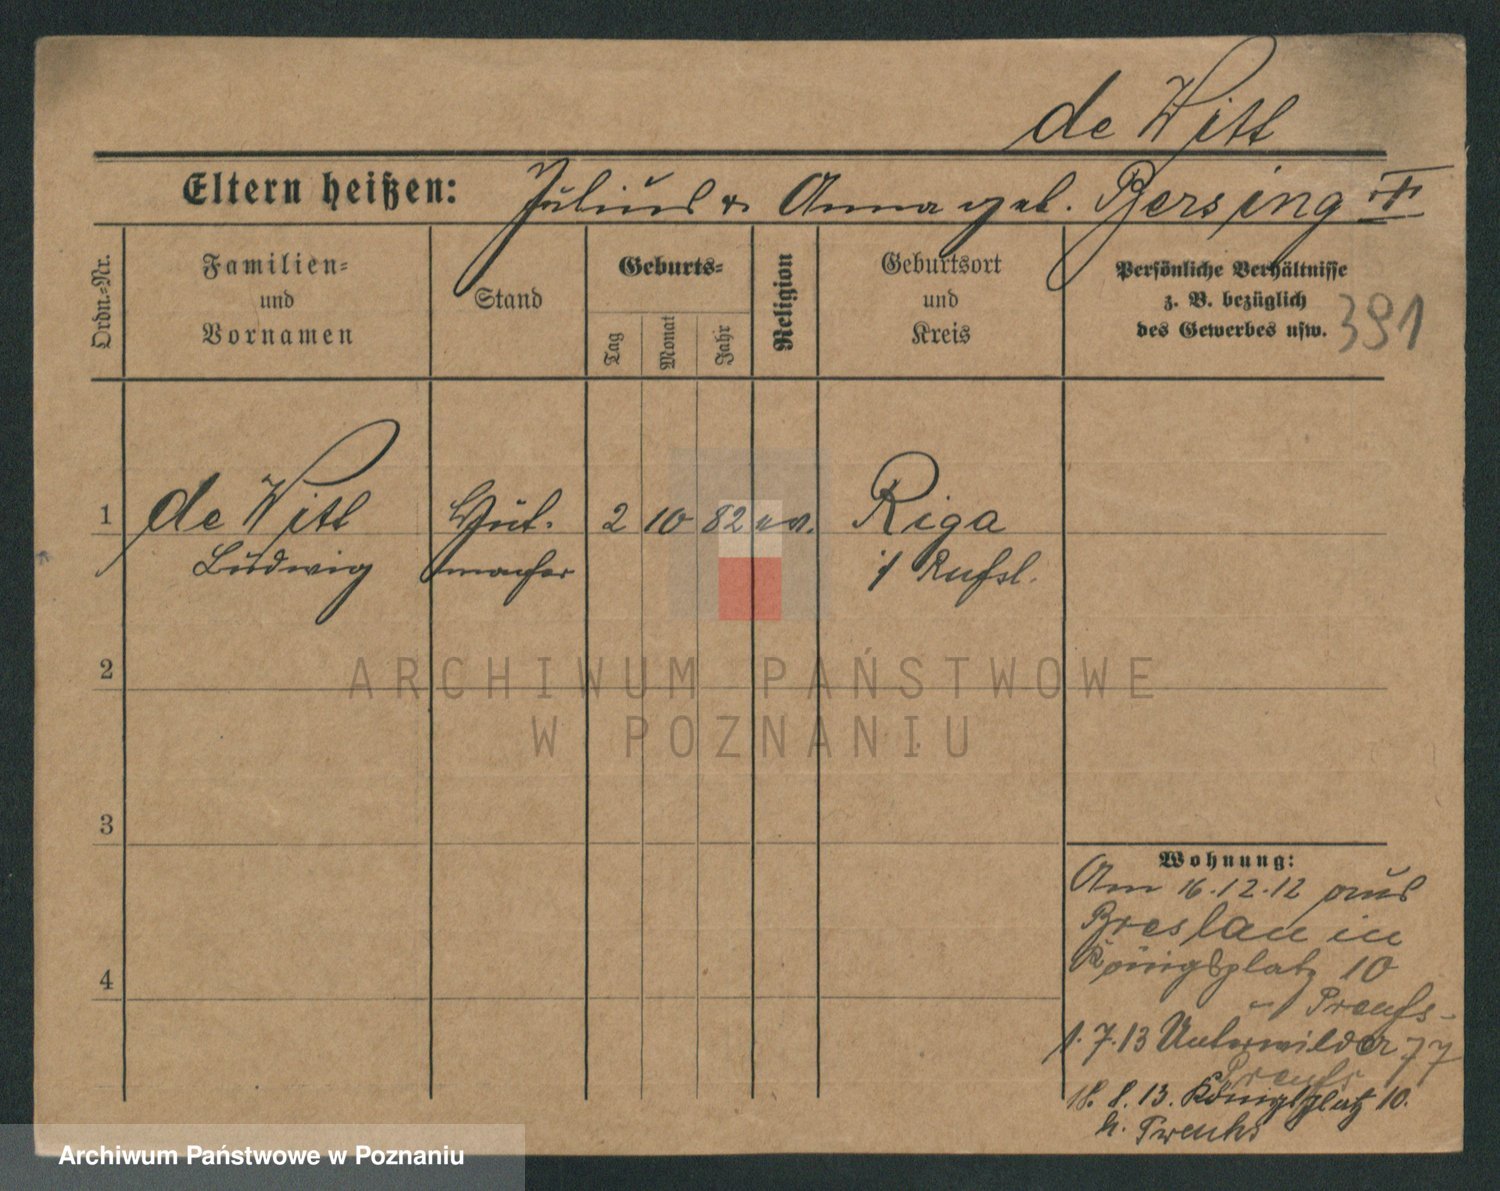 de Witt
Eltern heißen: Julius & Anna geb. Bersing
Ordn.-Nr.
Familien-
und
Vornamen
Stand
Geburts-
Tag
Monat
Jahr
Religion
Geburtsort
und
Kreis
Persönliche Verhältnisse
z. B. bezüglich
des Gewerbes usw.
391
1 de Witt Hut- 2 10 82 ev. Riga
Ludwig macher i/ Rußl.
2
ARCHIWUM PAŃSTWOWE
W POZNANIU
3
Wohnung:
Am 16.12.12 aus
Breslau in
Königsplatz 10
Preuß-
4
1.7.13 Unterwilda 77
Preuß
18.8.13. Königsplatz 10.
Archiwum Państwowe w Poznaniu